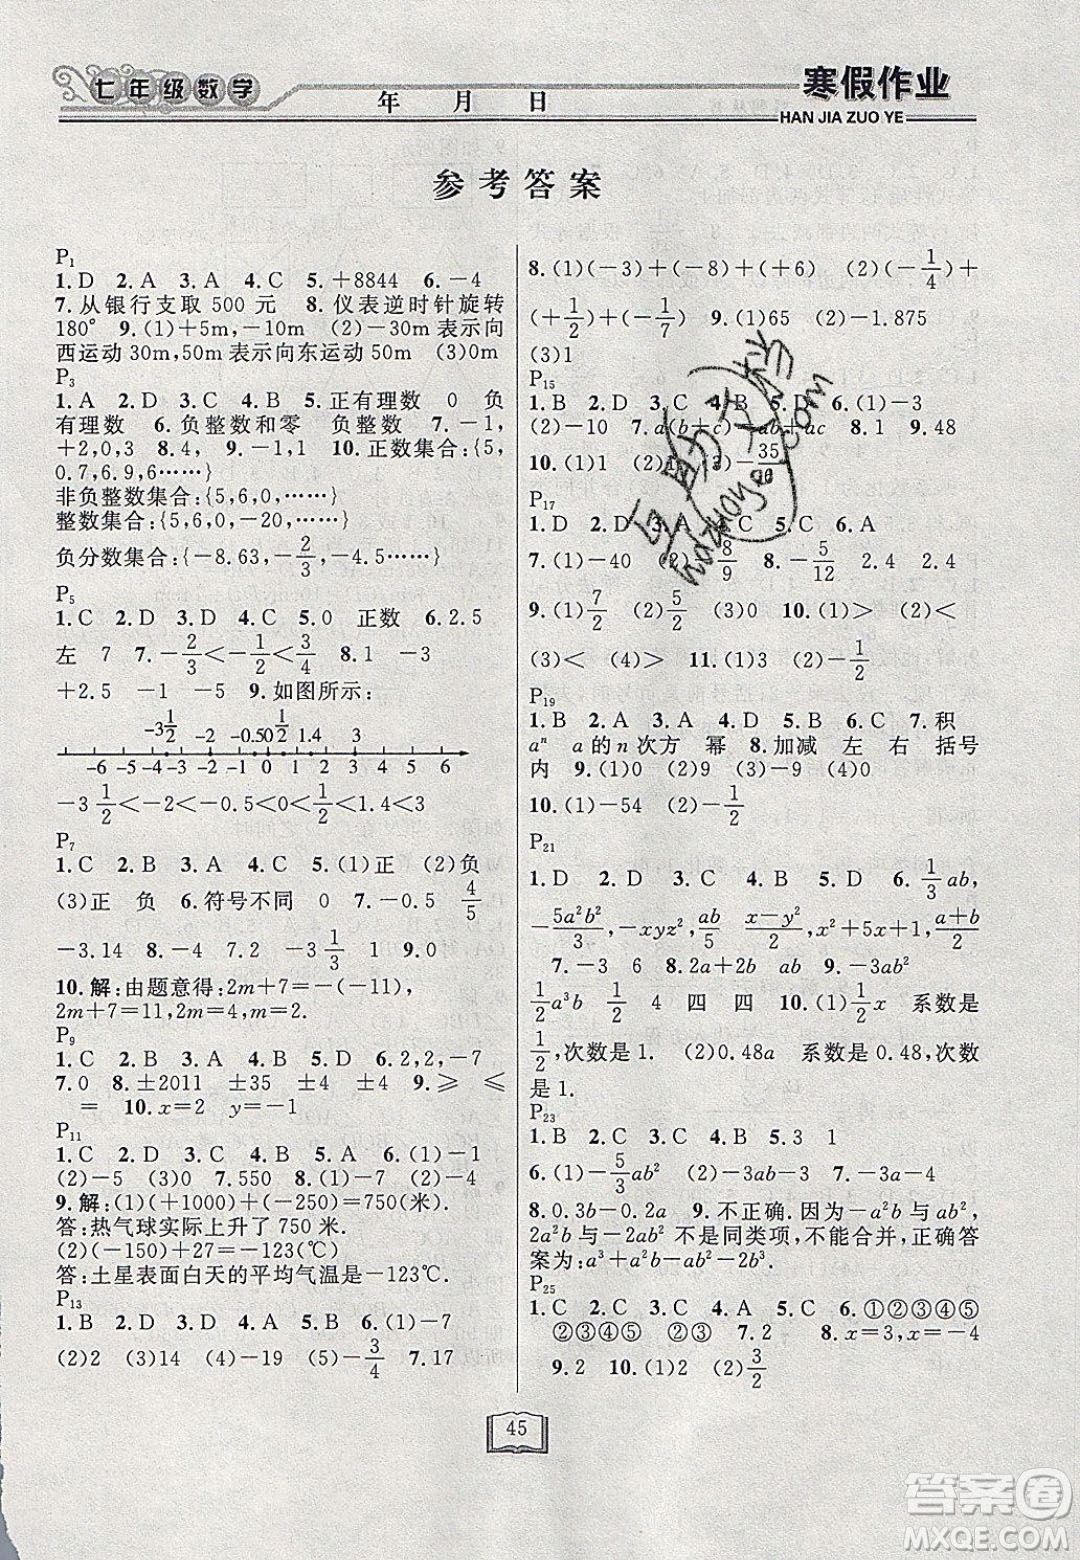 七年级数学
年 月 日
寒假作业
HAN JIA ZUO YE
参考答案
P₁
1.D 2.A 3.A 4.C 5.+8844 6.-4
7.从银行支取 500 元 8.仪表逆时针旋转
180° 9.(1)+5m,-10m (2)-30m表示向
西运动30m,50m表示向东运动50m (3)0m
P₃
1.A 2.D 3.C 4.C 5.正有理数 0 负
有理数 6.负整数和零 负整数 7.-1,
+2,0,3 8.4 9.-1,1 10.正数集合:{5,
0.7,6.9,6……}
非负整数集合:{5,6,0,……}
整数集合:{5,6,0,-20,……}
负分数集合:{-8.63,-2/3,-4.5……}
P₅
1.C 2.D 3.D 4.C 5.0 正数 6.2.5
左 7 7.-2/3<-1/2<3/4 8.1 -3
+2.5 -1 -5 9.如图所示:
-3 1/2 -2 -0.5 0 1/2 1.4 3
-6 -5 -4 -3 -2 -1 0 1 2 3 4 5 6
-3 1/2<-2<-0.5<0<1/2<1.4<3
P₇
1.C 2.B 3.A 4.C 5.(1)正 (2)负
(3)正 负 6.符号不同 0 7.-0.5 4/5
-3.14 8.-4 7.2 -3 1/3 1 9.0
10.解:由题意得:2m+7=-(-11),
2m+7=11,2m=4,m=2.
P₉
1.C 2.A 3.B 4.B 5.D 6.2,2,-7
7.0 8.±2011 ±35 ±4 ±4 9.≥ ≤
= 10.x=2 y=-1
P₁₁
1.C 2.D 3.D 4.B 5.A 6.(1)-1
(2)-5 (3)0 7.550 8.(1)-7 (2)-4
9.解:(1)(+1000)+(-250)=750(米).
答:热气球实际上升了 750 米.
(2)(-150)+27=-123(℃)
答:土星表面白天的平均气温是-123℃.
P₁₃
1.B 2.D 3.A 4.C 5.B 6.(1)-7
(2)2 (3)14 (4)-19 (5)-3/4 7.17
8.(1)(-3)+(-8)+(+6) (2)(-1/4)+
(+1/2)+(-1/7) 9.(1)65 (2)-1.875
(3)1
P₁₅
1.B 2.D 3.C 4.B 5.D 6.(1)-3
(2)-10 7.a(b+c)=ab+ac 8.1 9.48
10.(1)1 (2)1 (3)-35/36
P₁₇
1.D 2.D 3.A 4.C 5.C 6.A
7.(1)-4 (2)-8/9 8.-5/12 2.4 2.4
9.(1)7/2 (2)5/2 (3)0 10.(1)> (2)<
(3)< (4)> 11.(1)3 (2)-1/2
P₁₉
1.B 2.A 3.A 4.A 5.B 6.C 7.积
aⁿ a的n次方 幂 8.加减 左 右 括号
内 9.(1)0 (2)3 (3)-9 (4)0
10.(1)-54 (2)-1/2
P₂₁
1.D 2.A 3.A 4.B 5.D 6.1/3ab,
-5a²b²/3,-xyz²,ab/5 x-y²/2,x²+x-1,a+b/2
7.-3 6 8.2a+2b ab 9.-3ab²
1/2a³b 1/2 4 四 四 10.(1)1/2x 系数是
1/2,次数是1. (2)0.48a 系数是0.48,次数
是1.
P₂₃
1.B 2.C 3.D 4.B 5.3 1
6.(1)-5/3ab² (2)-3ab-3 7.-3a-4
8.0.3b-0.2a 9.不正确.因为-a²b与ab²,
2a²b与-2ab²不是同类项,不能合并,正确答
案为:a³+a²b-ab²-2b³.
P₂₅
1.C 2.C 3.C 4.A 5.C 6.①②③④⑤
②③④⑤ ②④ 7.2 8.x=3,x=-4
9.2 10.(1)2 (2)3/2
45
互助文档
hdzuoye.com
答案圈
MXQE.COM